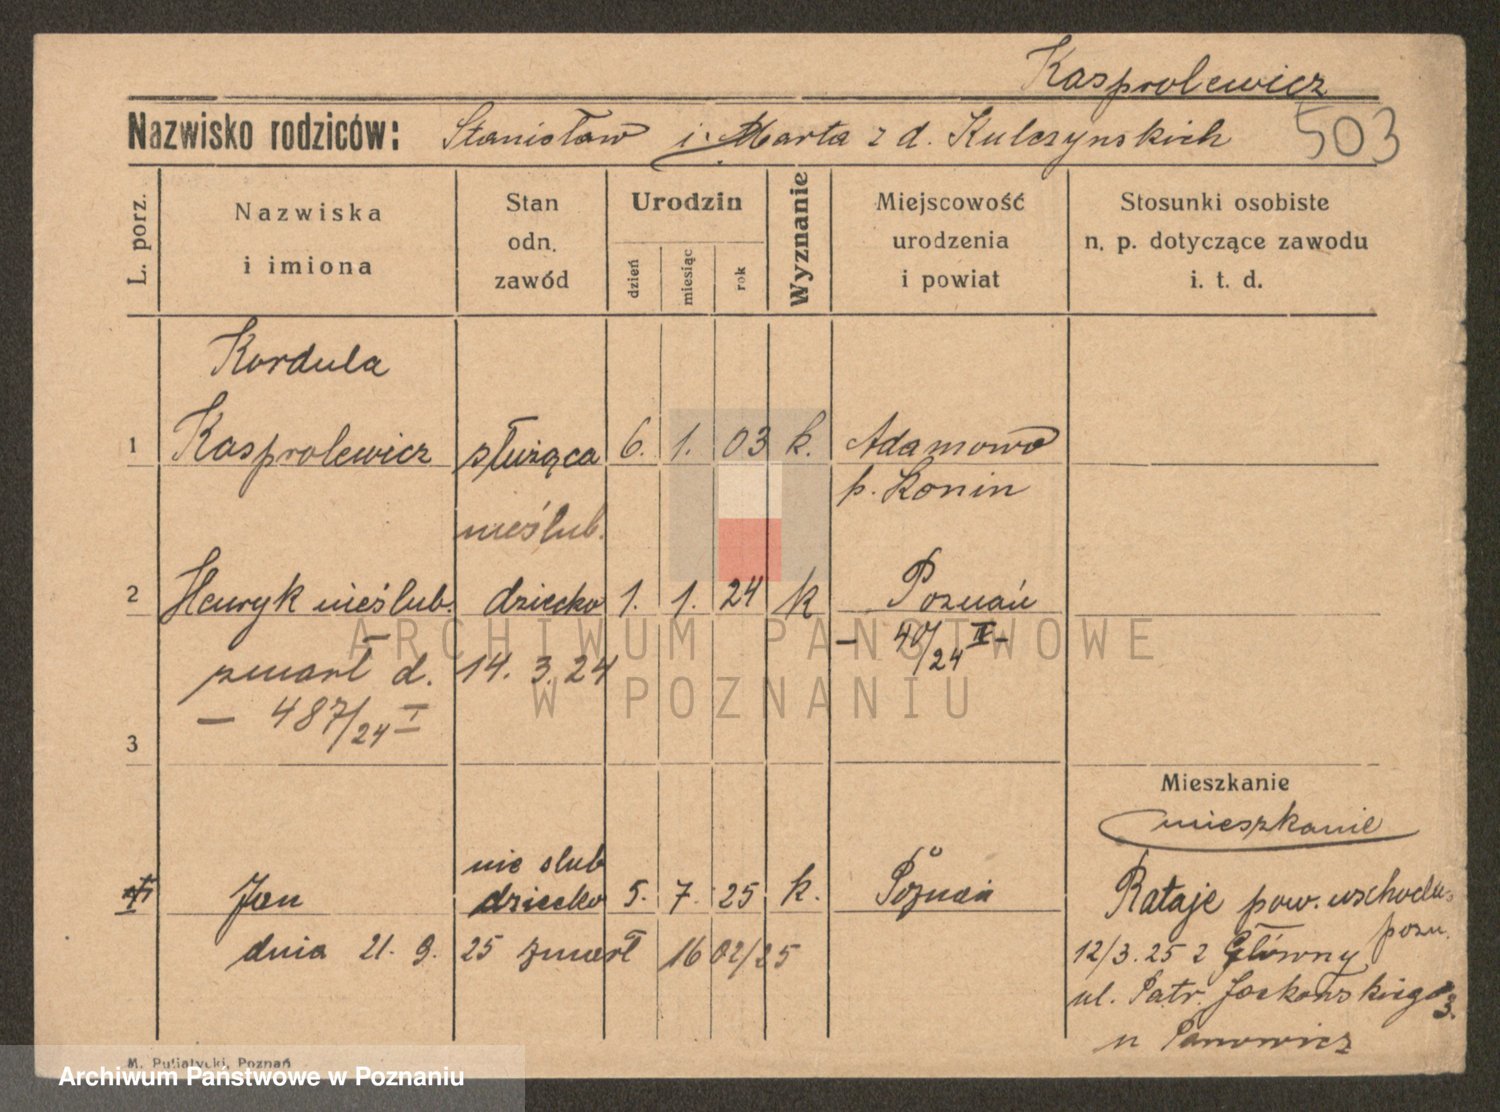 Kasprolewicz
Nazwisko rodziców: Stanisław i Marta z d. Kulczynskich 503
L. porz.
Nazwiska
i imiona
Stan
odn.
zawód
Urodzin
dzień
miesiąc
rok
Wyznanie
Miejscowość
urodzenia
i powiat
Stosunki osobiste
n. p. dotyczące zawodu
i. t. d.
Kordula
1 Kasprolewicz służąca 6. 1. 03 k. Adamowo
p. Konin
nieślub.
2 Henryk nieślub. dziecko 1. 1. 24 k Poznań
— 40/24 II —
zmarł d. 14. 3. 24
— 487/24 I
3
Mieszkanie
mieszkanie
nie slub
Jan dziecko 5. 7. 25 k. Poznań
Rataje pow. wschodn.
pozn.
dnia 21. 9. 25 zmarł 1602/25
12/3. 25 z Główny
ul. Patr. Jackowskiego 3.
u
M. Putiatycki, Poznań
ARCHIWUM PAŃSTWOWE
W POZNANIU
Archiwum Państwowe w Poznaniu